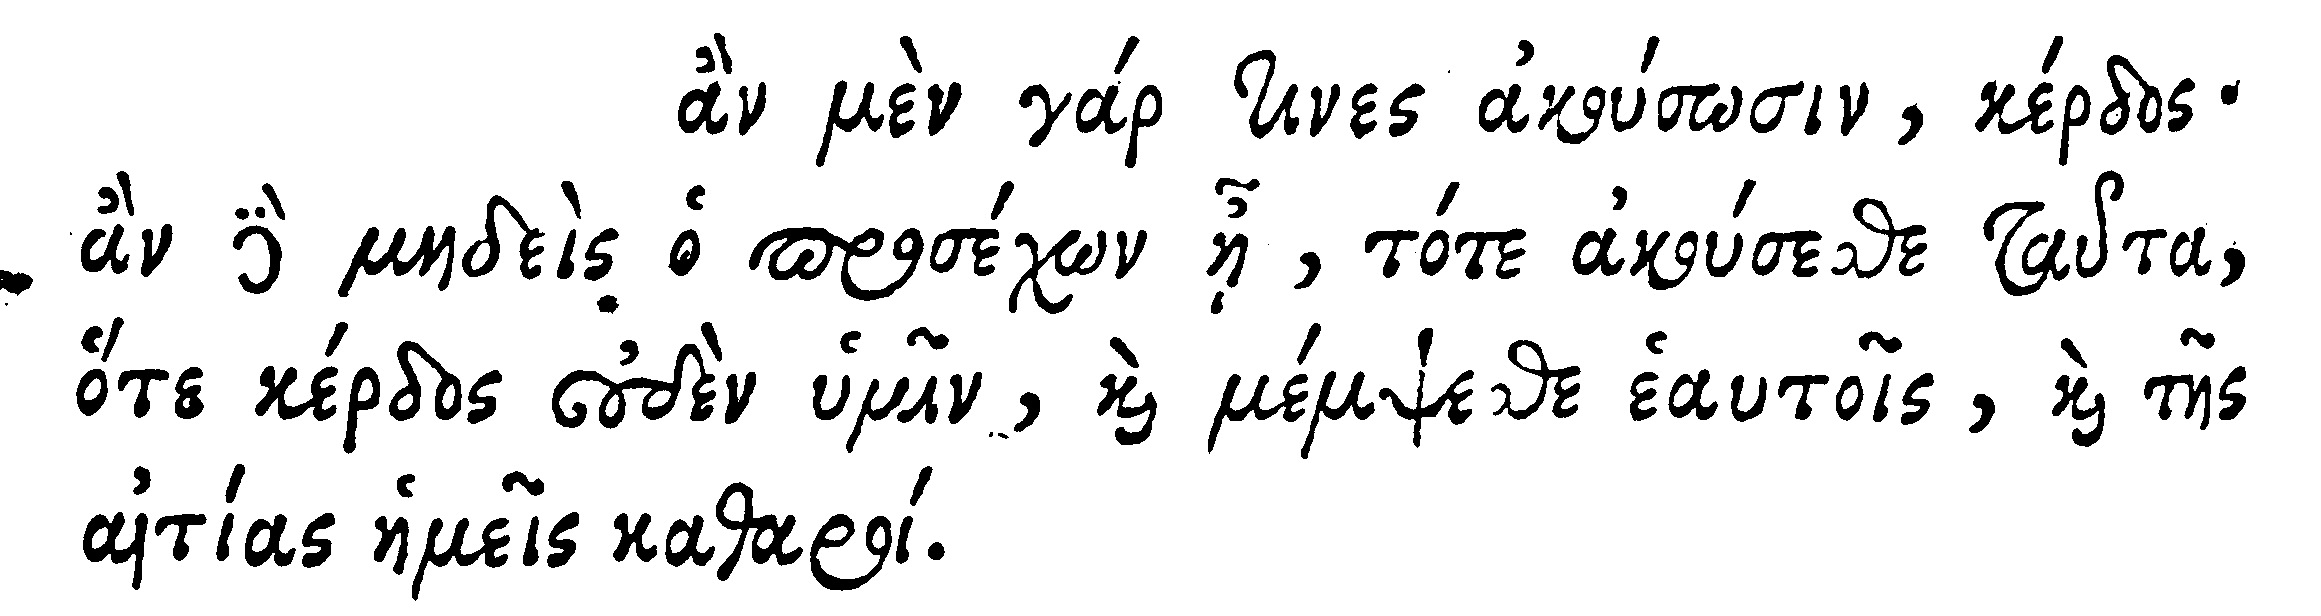 ἂν μὲν γάρ τινες ἀκούσωσιν, κέρδος·
ἂν δὲ μηδεὶς ὁ προσέχων ᾖ, τότε ἀκούσεσθε ταῦτα,
ὅτε κέρδος οὐδὲν ὑμῖν, καὶ μέμψεσθε ἑαυτοῖς, καὶ τῆς
αἰτίας ἡμεῖς καθαροί.